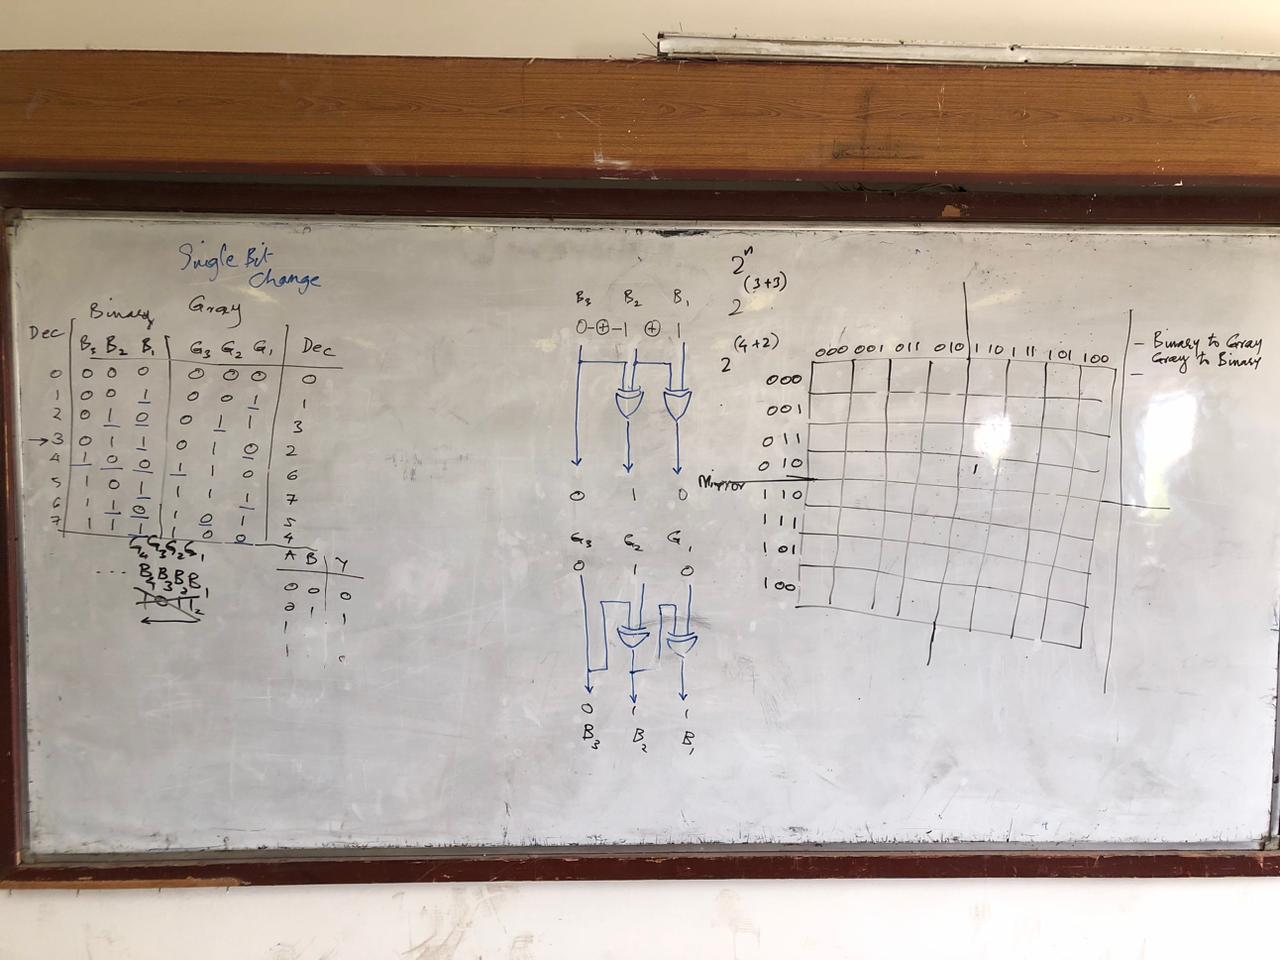 Single Bit
Change
Binary Gray
Dec B3 B2 B1 G3 G2 G1 Dec
0 0 0 0 0 0 0 0
1 0 0 1 0 0 1 1
2 0 1 0 0 1 1 3
→3 0 1 1 0 1 0 2
4 1 0 0 1 1 0 6
5 1 0 1 1 1 1 7
6 1 1 0 1 0 1 5
7 1 1 1 1 0 0 4
G4 G3 G2 G1
.... B4 B3 B2 B1
A B Y
0 0 0
0 1 1
1
1
B3 B2 B1
0-⊕-1 ⊕ 1
0 1 0
G3 G2 G1
0 1 0
0 1 1
B3 B2 B1
2^n
2^(3+3)
2^(4+2)
000 001 011 010 110 111 101 100
000
001
011
010
Mirror
110
111
101
100
1
- Binary to Gray
Gray to Binary
-